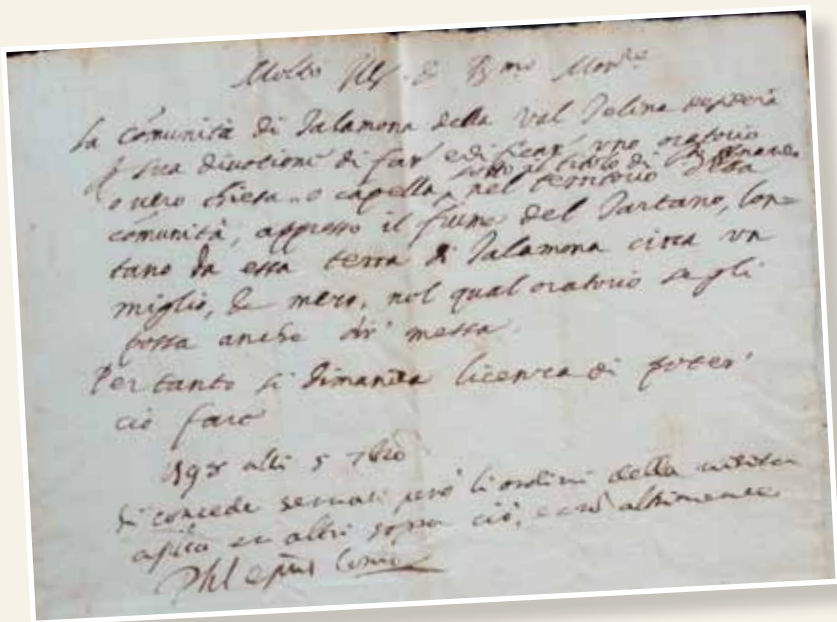 Molto Ill. & R.mo Mons.re
La comunità di Talamona della Val Telina desidera
p sua divotione di far edificar uno oratorio
sotto il titolo di
o vero chiesa o capella, nel territorio d'essa
comunità, appresso il fiume del Tartano, lon=
tano da essa terra di Talamona circa un
miglio, & mezo, nel qual oratorio se gli
possa anche dir messa.
Per tanto si dimanda licenza di poter
ciò fare
alli 5 7bre
Si concede servati però li ordini della visita
aplica et altri sopra ciò, e non altrimente